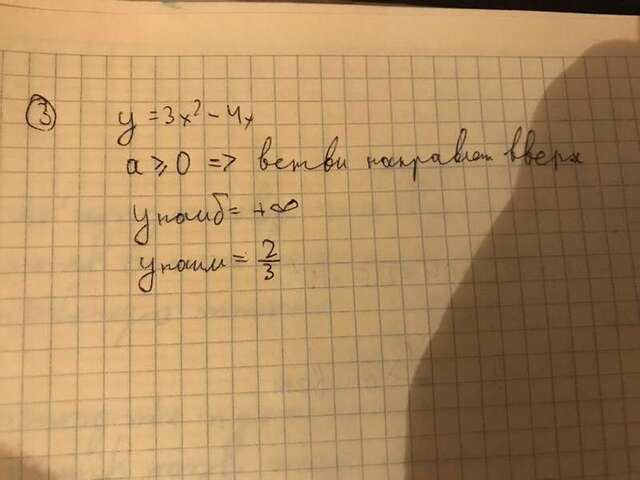 3 y = 3x² - 4x
a ⩾ 0 => ветви направлен вверх
y наиб = +∞
y наим = 2/3